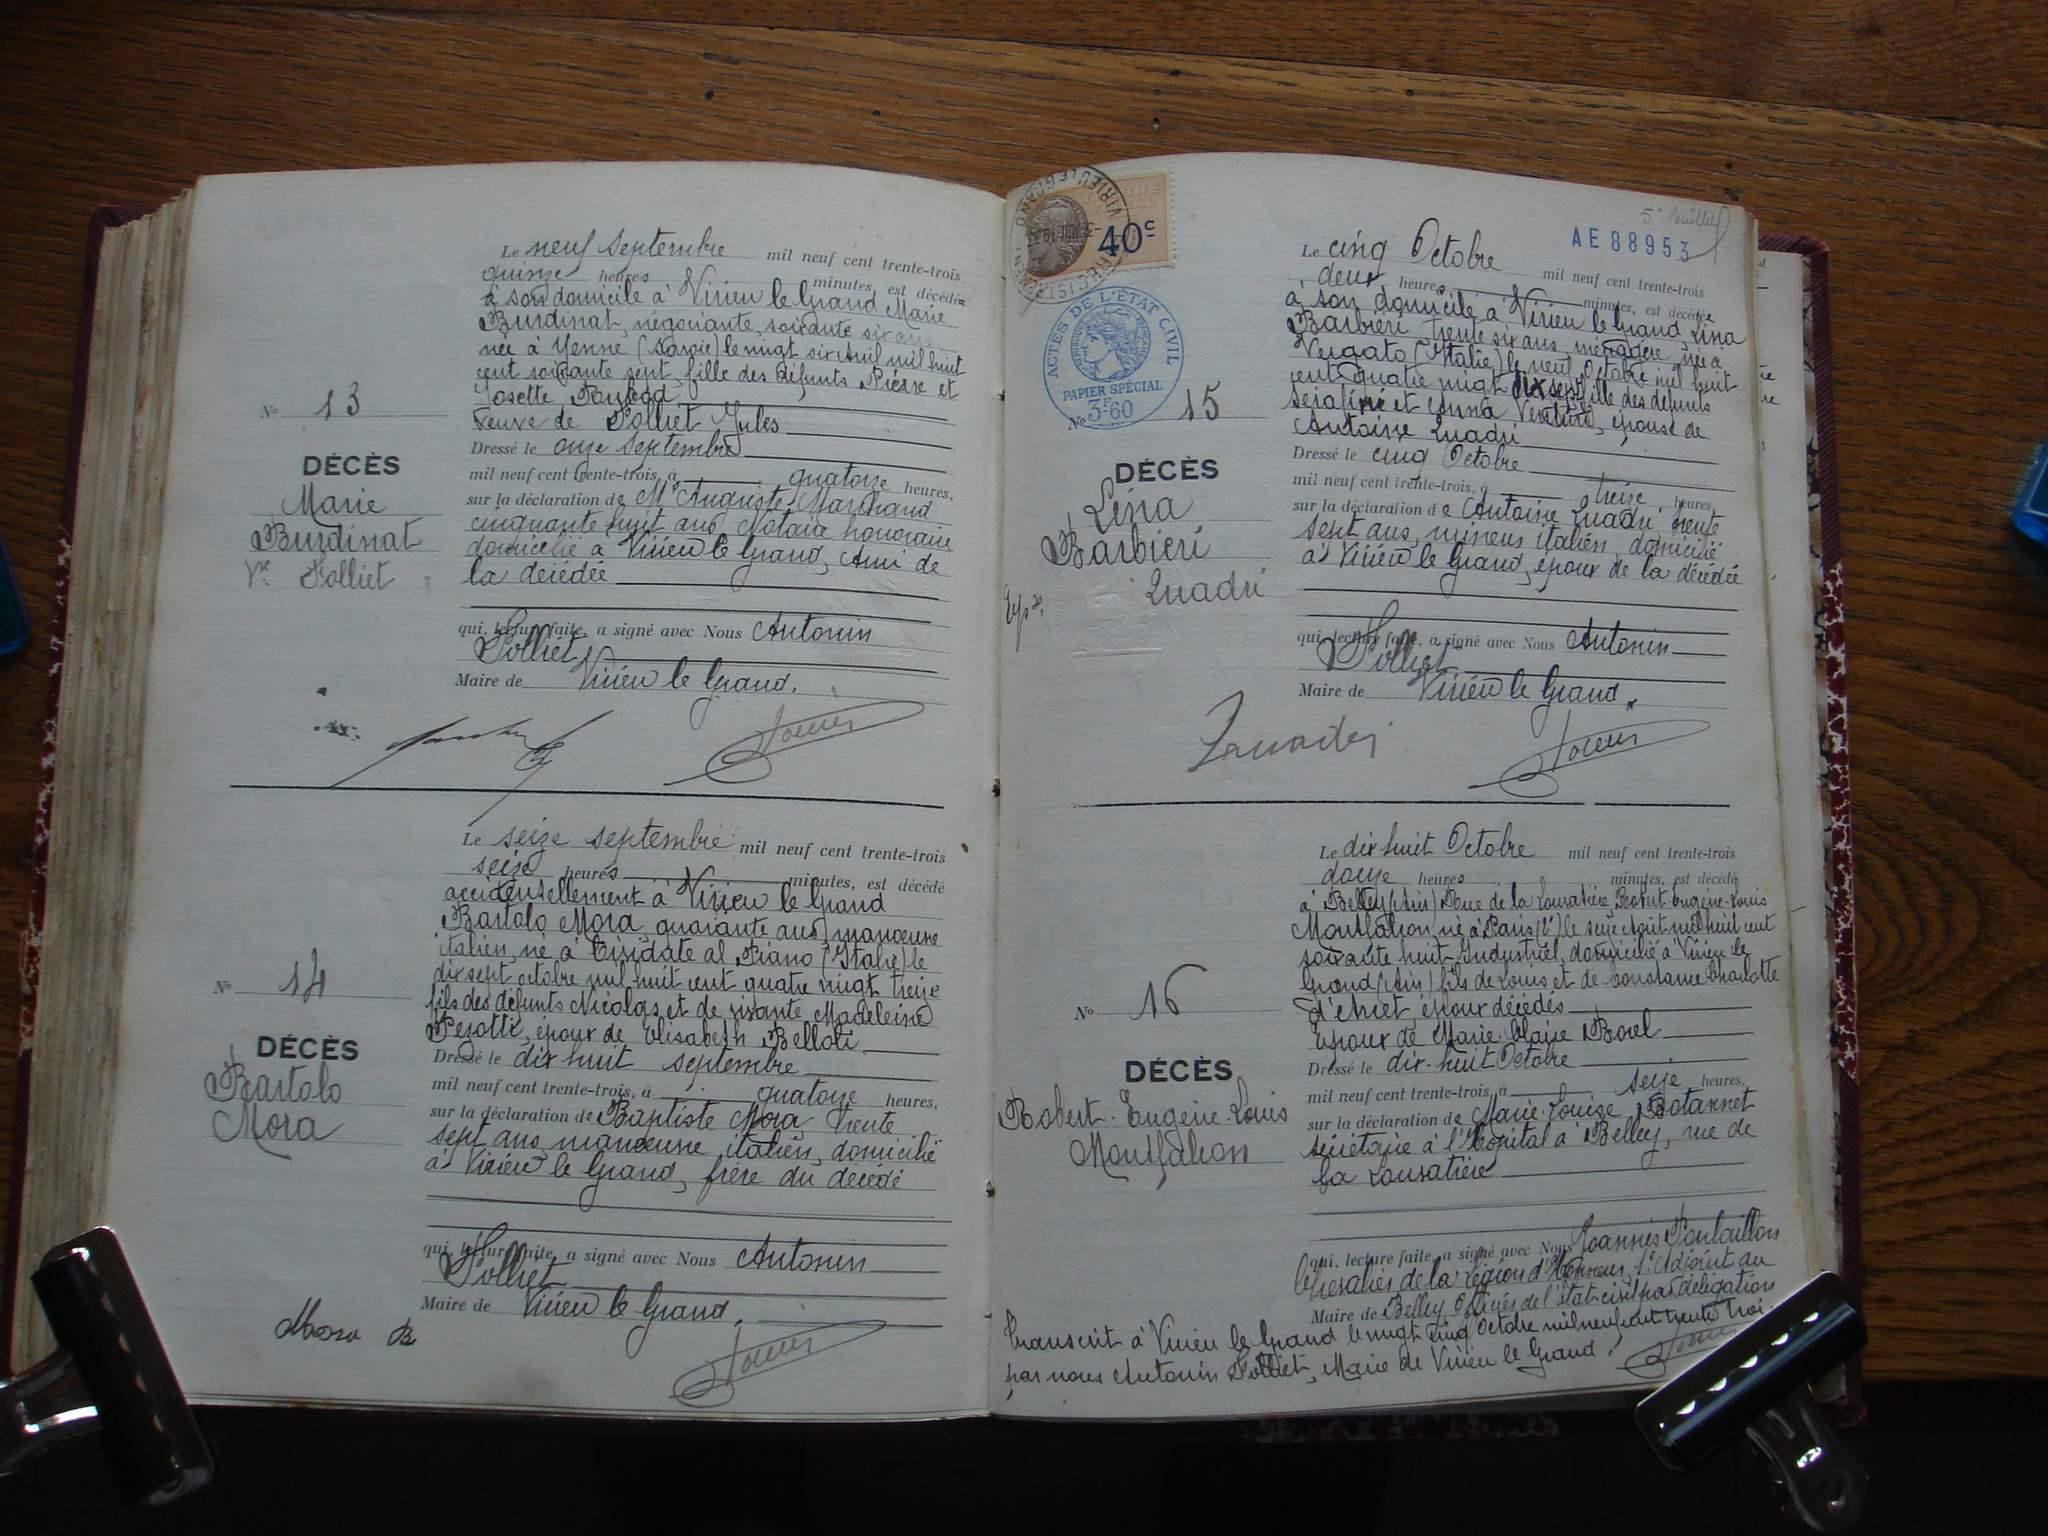 Le neuf septembre mil neuf cent trente-trois
quinze heures minutes, est décédée
à son domicile à Virieu le Grand Marie
Burdinat, négociante, soixante six ans
née à Yenne (Savoie) le vingt six Avril mil huit
cent soixante sept, fille des défunts Pierre et
Josette
veuve de Polliet Jules
Dressé le onze septembre
mil neuf cent trente-trois, à quatorze heures,
sur la déclaration de Me Auguste Marchand
cinquante huit ans Notaire honoraire
domicilié à Virieu le Grand, Ami de
la décédée
qui, lecture faite, a signé avec Nous Antonin
Polliet
Maire de Virieu le Grand.
No 13
DÉCÈS
Marie
Burdinat
Vve Polliet
Le seize septembre mil neuf cent trente-trois
seize heures minutes, est décédé
accidentellement à Virieu le Grand
Bartolo Mora, quarante ans, manœuvre
italien, né à Cividate al Piano (Italie) le
dix sept octobre mil huit cent quatre vingt treize
fils des défunts Nicolas et de vivante Madeleine
Pesotti, époux de Elisabeth Belloli
Dressé le dix huit septembre
mil neuf cent trente-trois, à quatorze heures,
sur la déclaration de Baptiste Mora, trente
sept ans, manœuvre italien, domicilié
à Virieu le Grand, frère du décédé
qui, lecture faite, a signé avec Nous Antonin
Polliet
Maire de Virieu le Grand.
Mora B
No 14
DÉCÈS
Bartolo
Mora
5e feuillet
AE 88953
40c
VIRIEU LE GRAND
ACTES DE L'ÉTAT CIVIL
PAPIER SPÉCIAL
3F60
Le cinq Octobre mil neuf cent trente-trois
deux heures minutes, est décédée
à son domicile à Virieu le Grand Lina
Barbieri trente six ans, ménagère, née à
Vergato (Italie) le neuf Octobre mil huit
cent quatre vingt dix sept fille des défunts
Serafine et Anna Venturi, épouse de
Antoine Quadri
Dressé le cinq Octobre
mil neuf cent trente-trois, à treize heures,
sur la déclaration de Antoine Quadri trente
sept ans, mineur italien, domicilié
à Virieu le Grand, époux de la décédée
qui, lecture faite, a signé avec Nous Antonin
Polliet
Maire de Virieu le Grand.
No 15
DÉCÈS
Lina
Barbieri
Eps. Quadri
Le dix huit Octobre mil neuf cent trente-trois
douze heures minutes, est décédé
à Belley (Ain) Rue de la Lousatière, Robert-Eugène-Louis
Montfalcon, né à Paris (2e) le seize Août mil huit cent
soixante huit, Industriel, domicilié à Virieu le
Grand (Ain) fils de Louis et de Constance Charlotte
époux décédés
époux de Marie-Claire Borel
Dressé le dix-huit Octobre
mil neuf cent trente-trois, à seize heures,
sur la déclaration de Marie-Louise Botannet
secrétaire à l'Hopital à Belley, rue de
la Lousatière
qui, lecture faite, a signé avec Nous Joannès Pontaillon
Chevalier de la Légion d'Honneur, 1er Adjoint au
Maire de Belley Officier de l'état-civil par délégation
Transcrit à Virieu le Grand le vingt cinq Octobre mil neuf cent trente trois
par nous Antonin Polliet, Maire de Virieu le Grand.
No 16
DÉCÈS
Robert-Eugène-Louis
Montfalcon